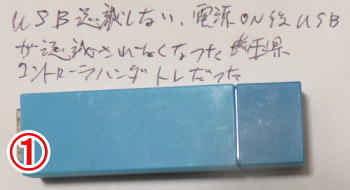 USB認識しない、電源ON後USB
が認識されなくなった 埼玉県
コントローラハンダトレだった
①